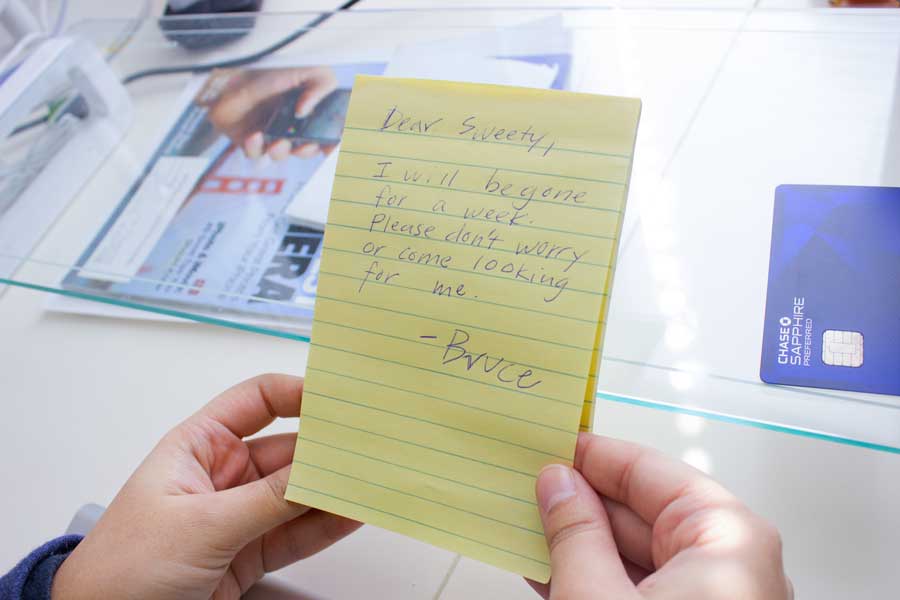 Dear Sweety,
I will be gone
for a week.
Please don't worry
or come looking
for me.
-Bruce
CHASE
SAPPHIRE
PREFERRED
ERA